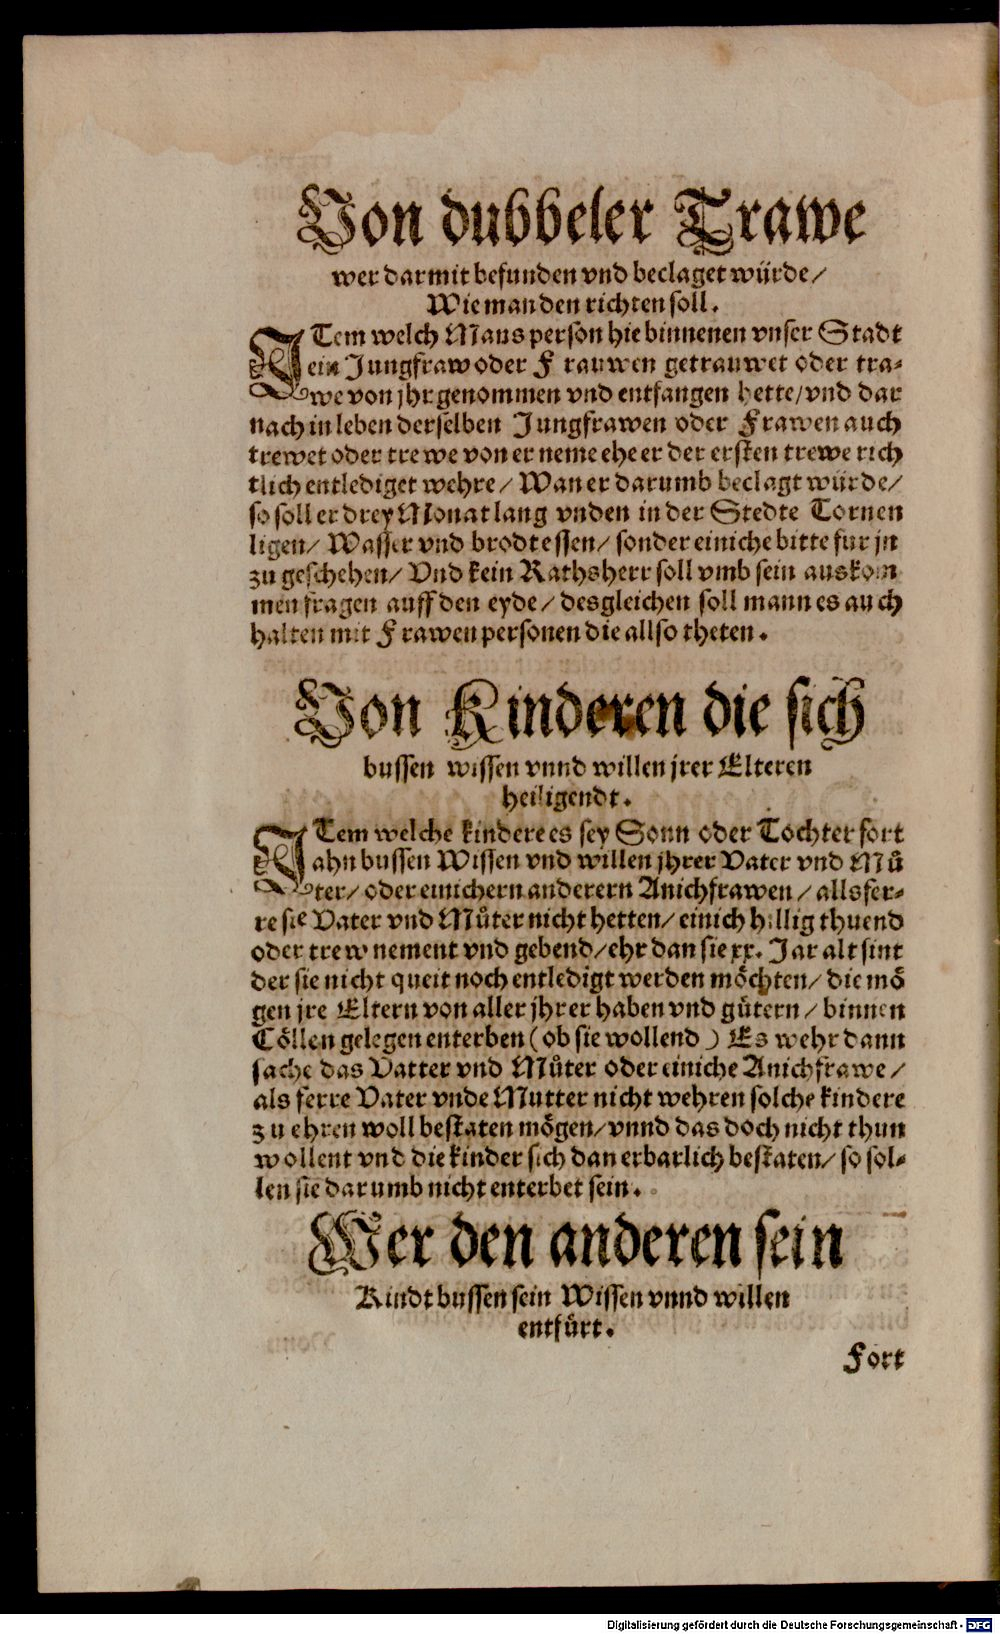 Von dubbeler Trawe
wer darmit befunden vnd beclaget würde/
Wie man den richten soll.
ITem welch Mans person hie binnenen vnser Stadt
ein Jungfraw oder Frauwen getrauwet oder tra-
we von jhr genommen vnd entfangen hette/ vnd dar
nach in leben derselben Jungfrawen oder Frawen auch
trewet oder trewe von er neme ehe er der ersten trewe rich
tlich entlediget wehre/ Wan er darumb beclagt würde/
so soll er drey Monat lang vnden in der Stedte Tornen
ligen/ Wasser vnd brodt essen/ sonder einiche bitte fur jn
zu geschehen/ Vnd kein Rathsherr soll vmb sein auskom
men fragen auff den eyde/ desgleichen soll mann es auch
halten mit Frawen personen die allso theten.
Von Kinderen die sich
bussen wissen vnnd willen jrer Elteren
heiligendt.
ITem welche kindere es sey Sonn oder Tochter fort
ahn bussen Wissen vnd willen jhrer Vater vnd Mů
ter/ oder einichern anderern Anichfrawen/ alls fer-
re sie Vater vnd Můter nicht hetten/ einich hillig thuend
oder trew nement vnd gebend/ ehr dan sie xx. Jar alt sint
der sie nicht queit noch entledigt werden möchten/ die mö
gen jre Eltern von aller jhrer haben vnd gütern/ binnen
Cöllen gelegen enterben (ob sie wollend) Es wehr dann
sache das Vatter vnd Můter oder einiche Anichfrawe/
als ferre Vater vnde Mutter nicht wehren solche kindere
zu ehren woll bestaten mögen/ vnnd das doch nicht thun
wollent vnd die kinder sich dan erbarlich bestaten/ so sol-
len sie darumb nicht enterbet sein.
Wer den anderen sein
Kindt bussen sein Wissen vnnd willen
entfürt.
Fort
Digitalisierung gefördert durch die Deutsche Forschungsgemeinschaft - DFG